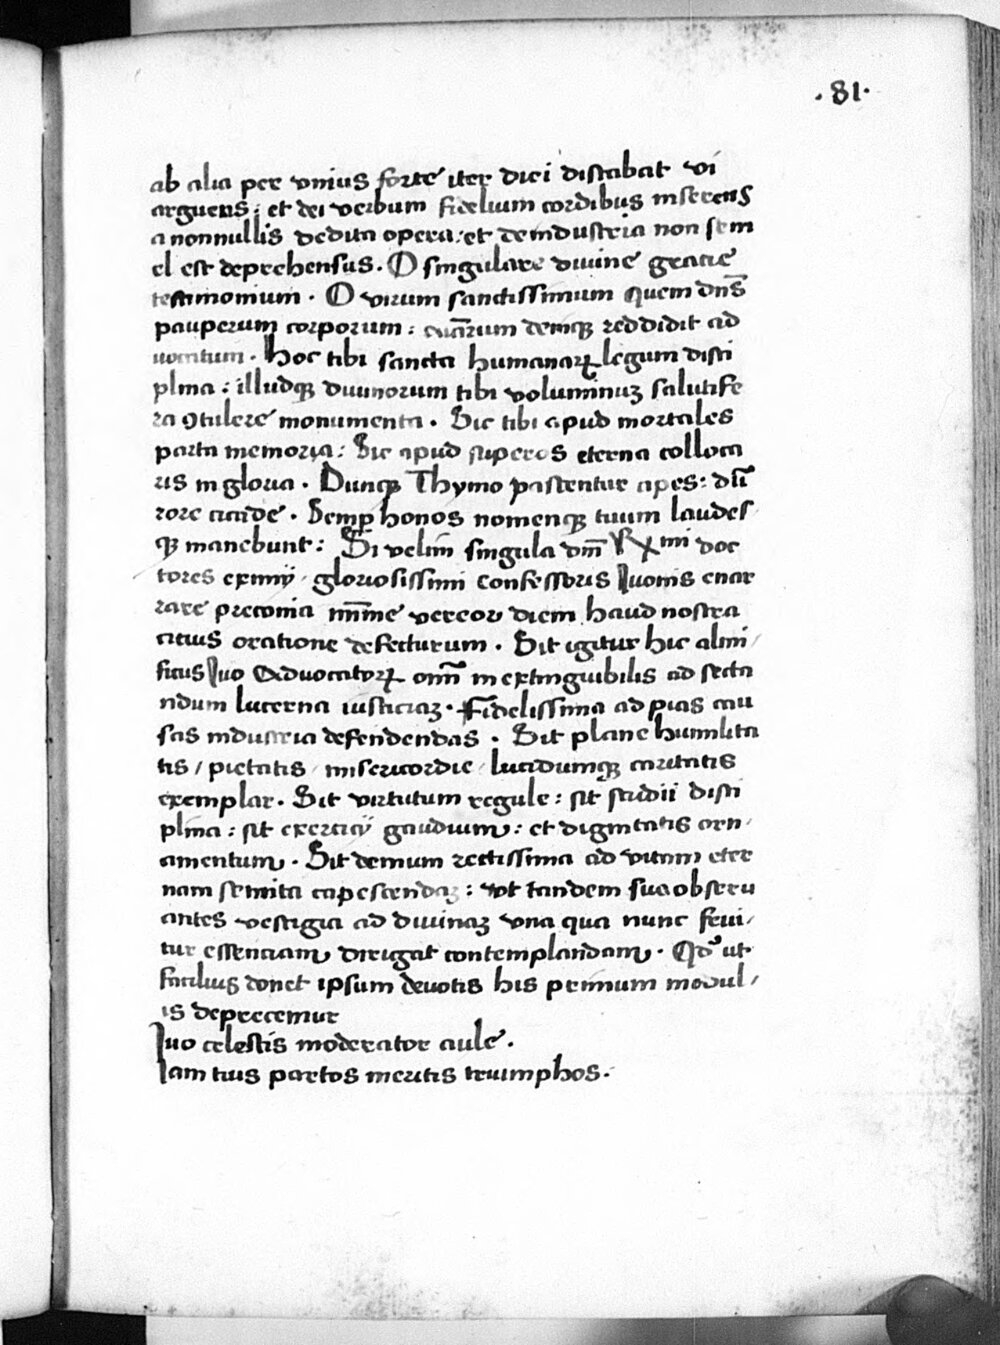 .81.
ab alia per vnius forte iter diei distabat vi
arguens: et dei verbum fidelium cordibus inserens
a nonnullis dedita opera: et de industria non sem
el est deprehensus. O singulare diuine gracie
testimonium. O virum sanctissimum quem dn̄s
pauperum corporum: aīarum demqꝫ reddidit ad
uocatum. Hoc tibi sancta humanaꝝ legum disci
plina: illudqꝫ diuinorum tibi voluminuꝫ salutife
ra ꝯtulere monumenta. Sic tibi apud mortales
parta memoria: Sic apud superos eterna colloca
ris in gloria. Dunqꝫ Thymo pascentur apes: dū
rore cicade. Semꝑ honos nomenqꝫ tuum laudes
qꝫ manebunt: Si velim singula dm̄ doc
tores eximij gloriosissimi confessoris Iuonis enar
rare preconia nimme vereor diem haud nostra
citius oratione defecturum. Sit igitur hic almi
ficus Iuo Aduocatoꝝ om̄ inextinguibilis ad secta
ndum lucerna iusticiaꝫ. Fidelissima ad pias cau
sas industria defendendas. Sit plane humilita
tis / pietatis / misericordie / lucidumqꝫ caritatis
exemplar. Sit virtutum regule: sit studii disci
plina: sit exercicij gaudium: et dignitatis orn
amentum. Sit demum rectissima ad vitam eter
nam semita capescendaꝫ: vt tandem sua obseru
antes vestigia ad diuinaꝫ vna qua nunc frui
tur essenciam dirigat contemplandam. Qd' ut
facilius donet ipsum deuotis his primum modul
is deprecemur
Iuo celestis moderator aule.
Iam tuis partos meritis triumphos.